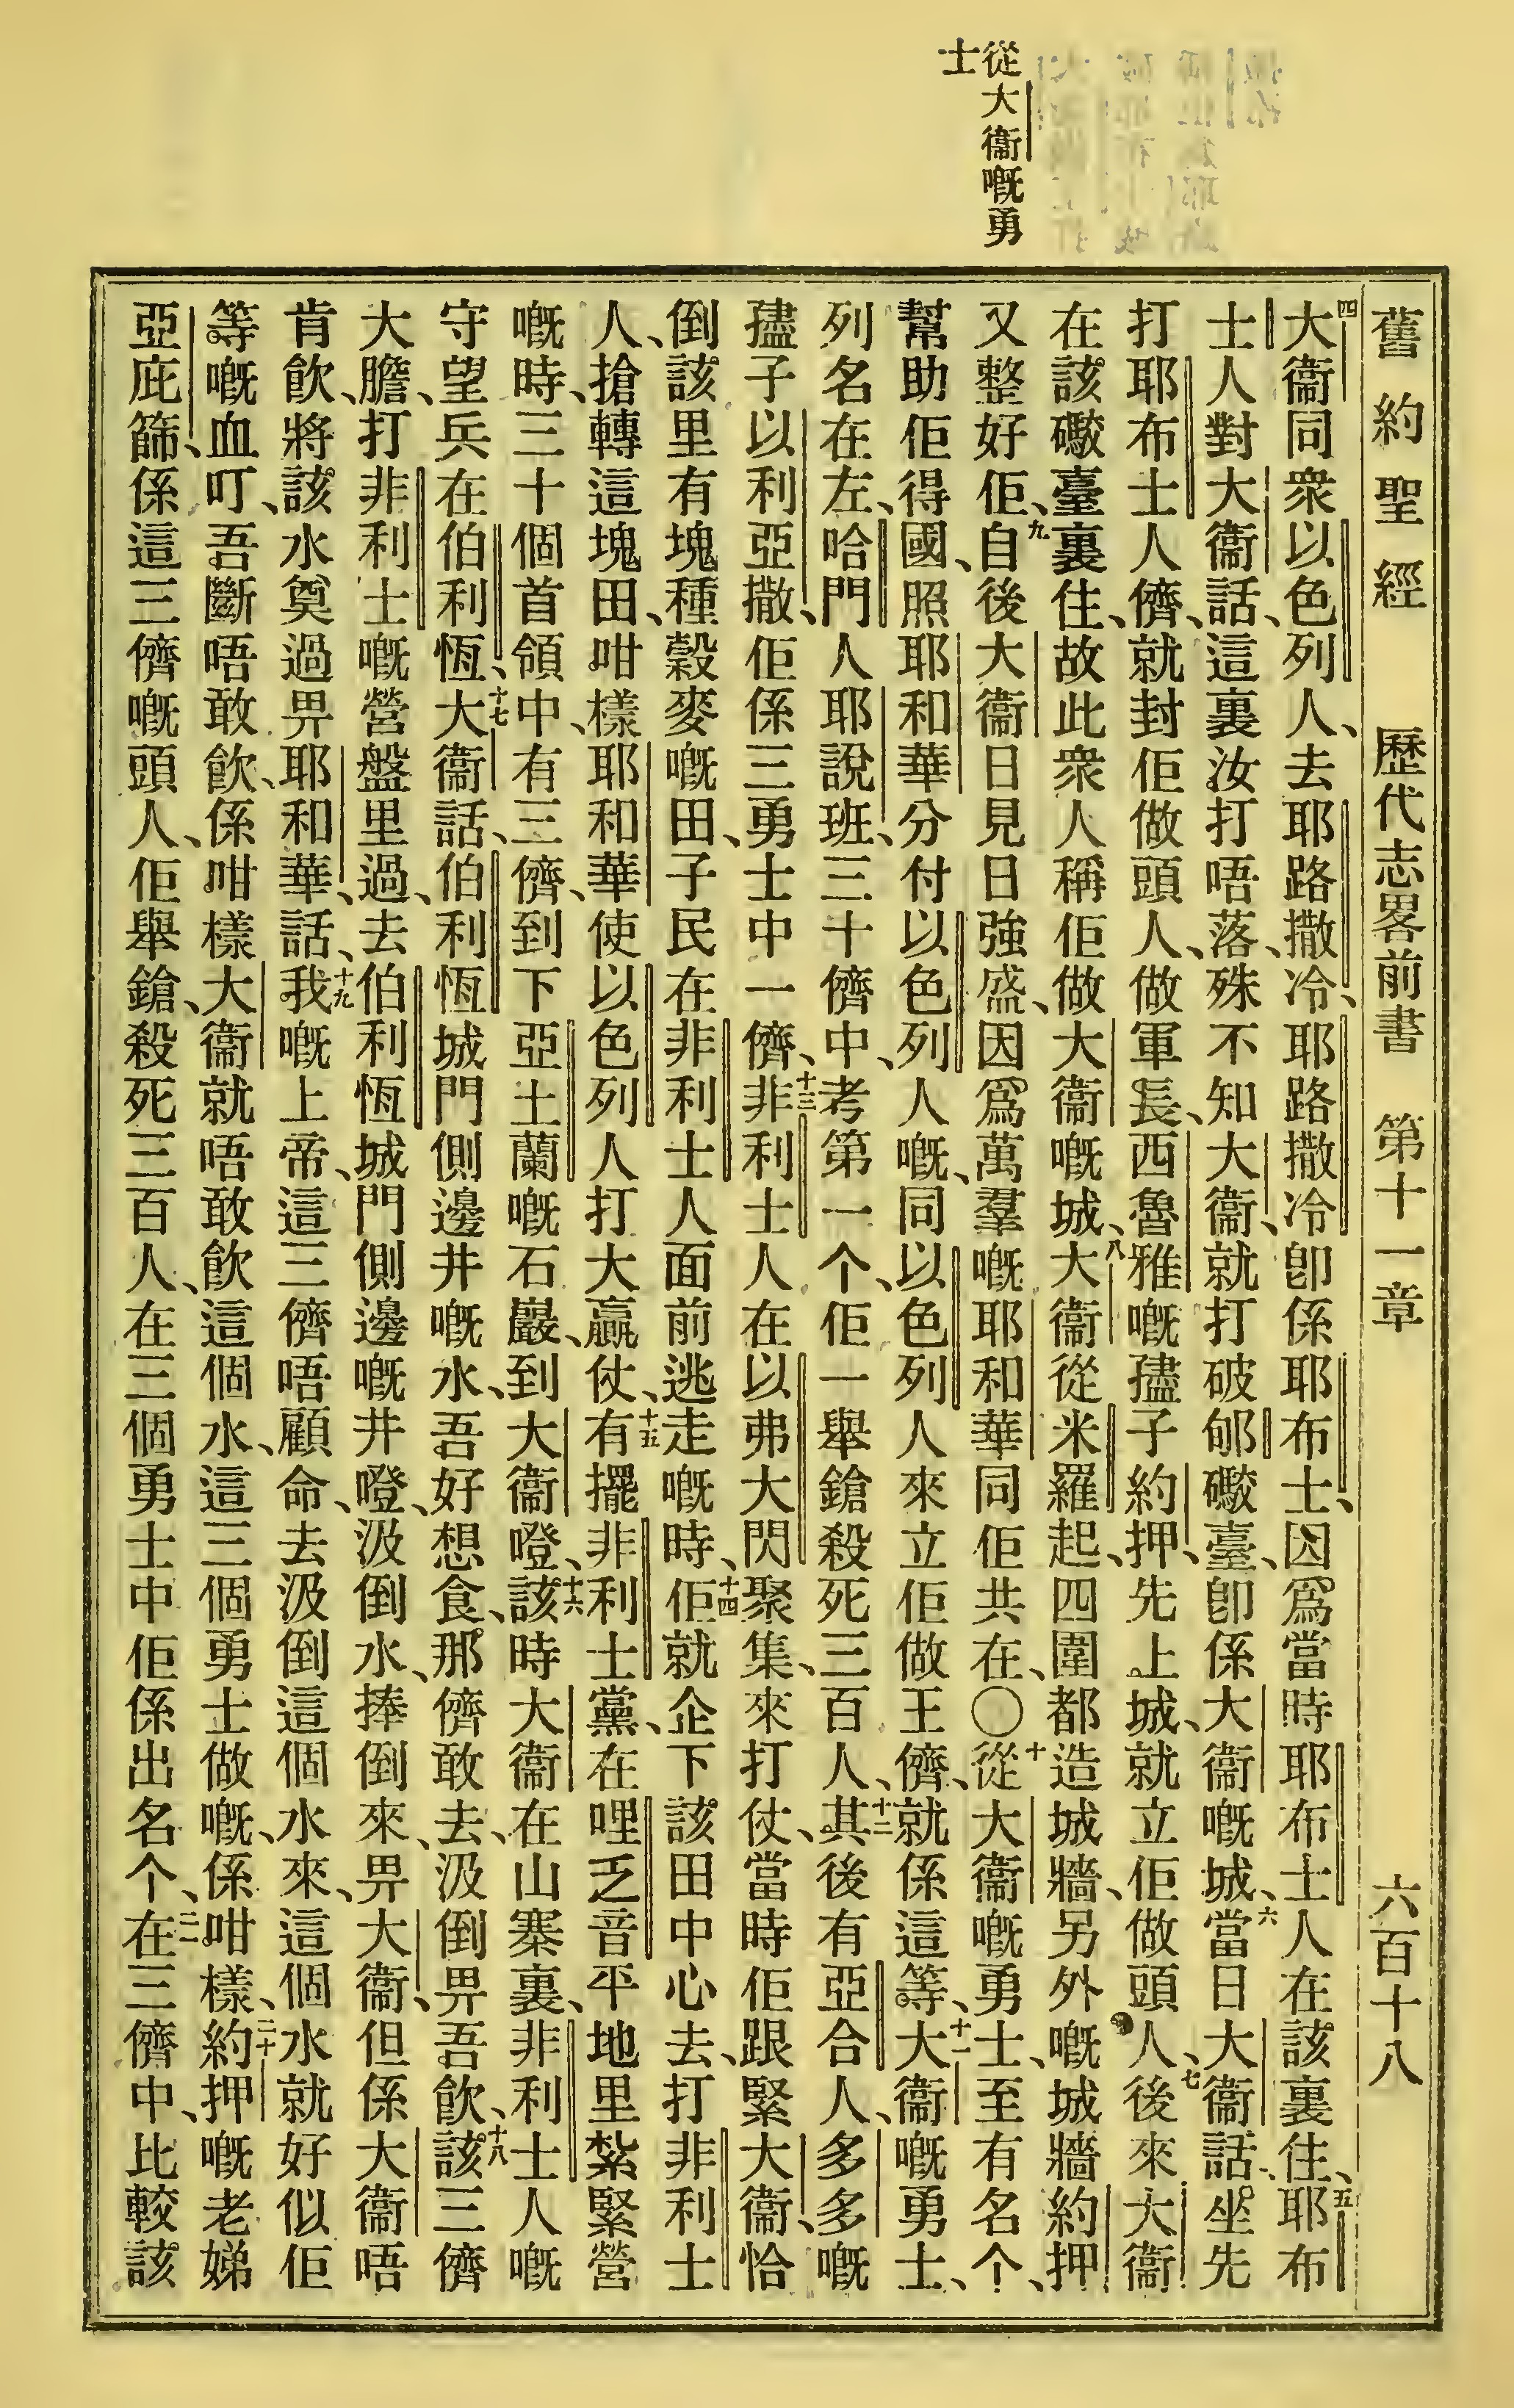 從大衞嘅勇
士
舊約聖經 歷代志畧前書 第十一章 六百十八
四大衞同衆以色列人、去耶路撒冷、耶路撒冷卽係耶布士、因爲當時耶布士人在該裏住、五耶布
士人對大衞話、這裏汝打唔落、殊不知大衞、就打破郇礮臺、卽係大衞嘅城、六當日大衞話、坐先
打耶布士人儕、就封佢做頭人、做軍長、西魯雅嘅孻子約押、先上城、就立佢做頭人、七後來大衞
在該礮臺裏住、故此衆人稱佢做大衞嘅城、八大衞從米羅起、四圍都造城牆、另外嘅城牆約押
又整好佢、九自後大衞日見日強盛、因爲萬羣嘅耶和華同佢共在、〇十從大衞嘅勇士、至有名个、
幫助佢得國、照耶和華分付以色列人嘅、同以色列人來立佢做王儕、就係這等、十一大衞嘅勇士、
列名在左、哈門人耶說班、三十儕中、考第一个、佢一舉鎗殺死三百人、十二其後有亞合人、多多嘅
孻子以利亞撒、佢係三勇士中一儕、十三非利士人在以弗大閃聚集、來打仗、當時佢跟緊大衞、恰
倒該里有塊種穀麥嘅田、子民在非利士人面前逃走嘅時、十四佢就企下該田中心去、打非利士
人、搶轉這塊田、咁樣耶和華使以色列人打大贏仗、十五有擺非利士黨、在哩乏音平地里紮緊營
嘅時、三十個首領中、有三儕、到下亞土蘭嘅石巖、到大衞嶝、十六該時大衞在山寨裏、非利士人嘅
守望兵在伯利恆、十七大衞話、伯利恆城門側邊井嘅水、吾好想食、那儕敢去、汲倒畀吾飮、十八該三儕
大膽、打非利士嘅營盤里過、去伯利恆城門側邊嘅井嶝、汲倒水、捧倒來、畀大衞、但係大衞唔
肯飮、將該水奠過畀耶和華、話、十九我嘅上帝、這三儕唔顧命、去汲倒這個水來、這個水就好似佢
等嘅血叮、吾斷唔敢飮、係咁樣大衞就唔敢飮這個水、這三個勇士做嘅、係咁樣、二十約押嘅老娣
亞庇篩、係這三儕嘅頭人、佢舉鎗、殺死三百人、在三個勇士中佢係出名个、二一在三儕中、比較該